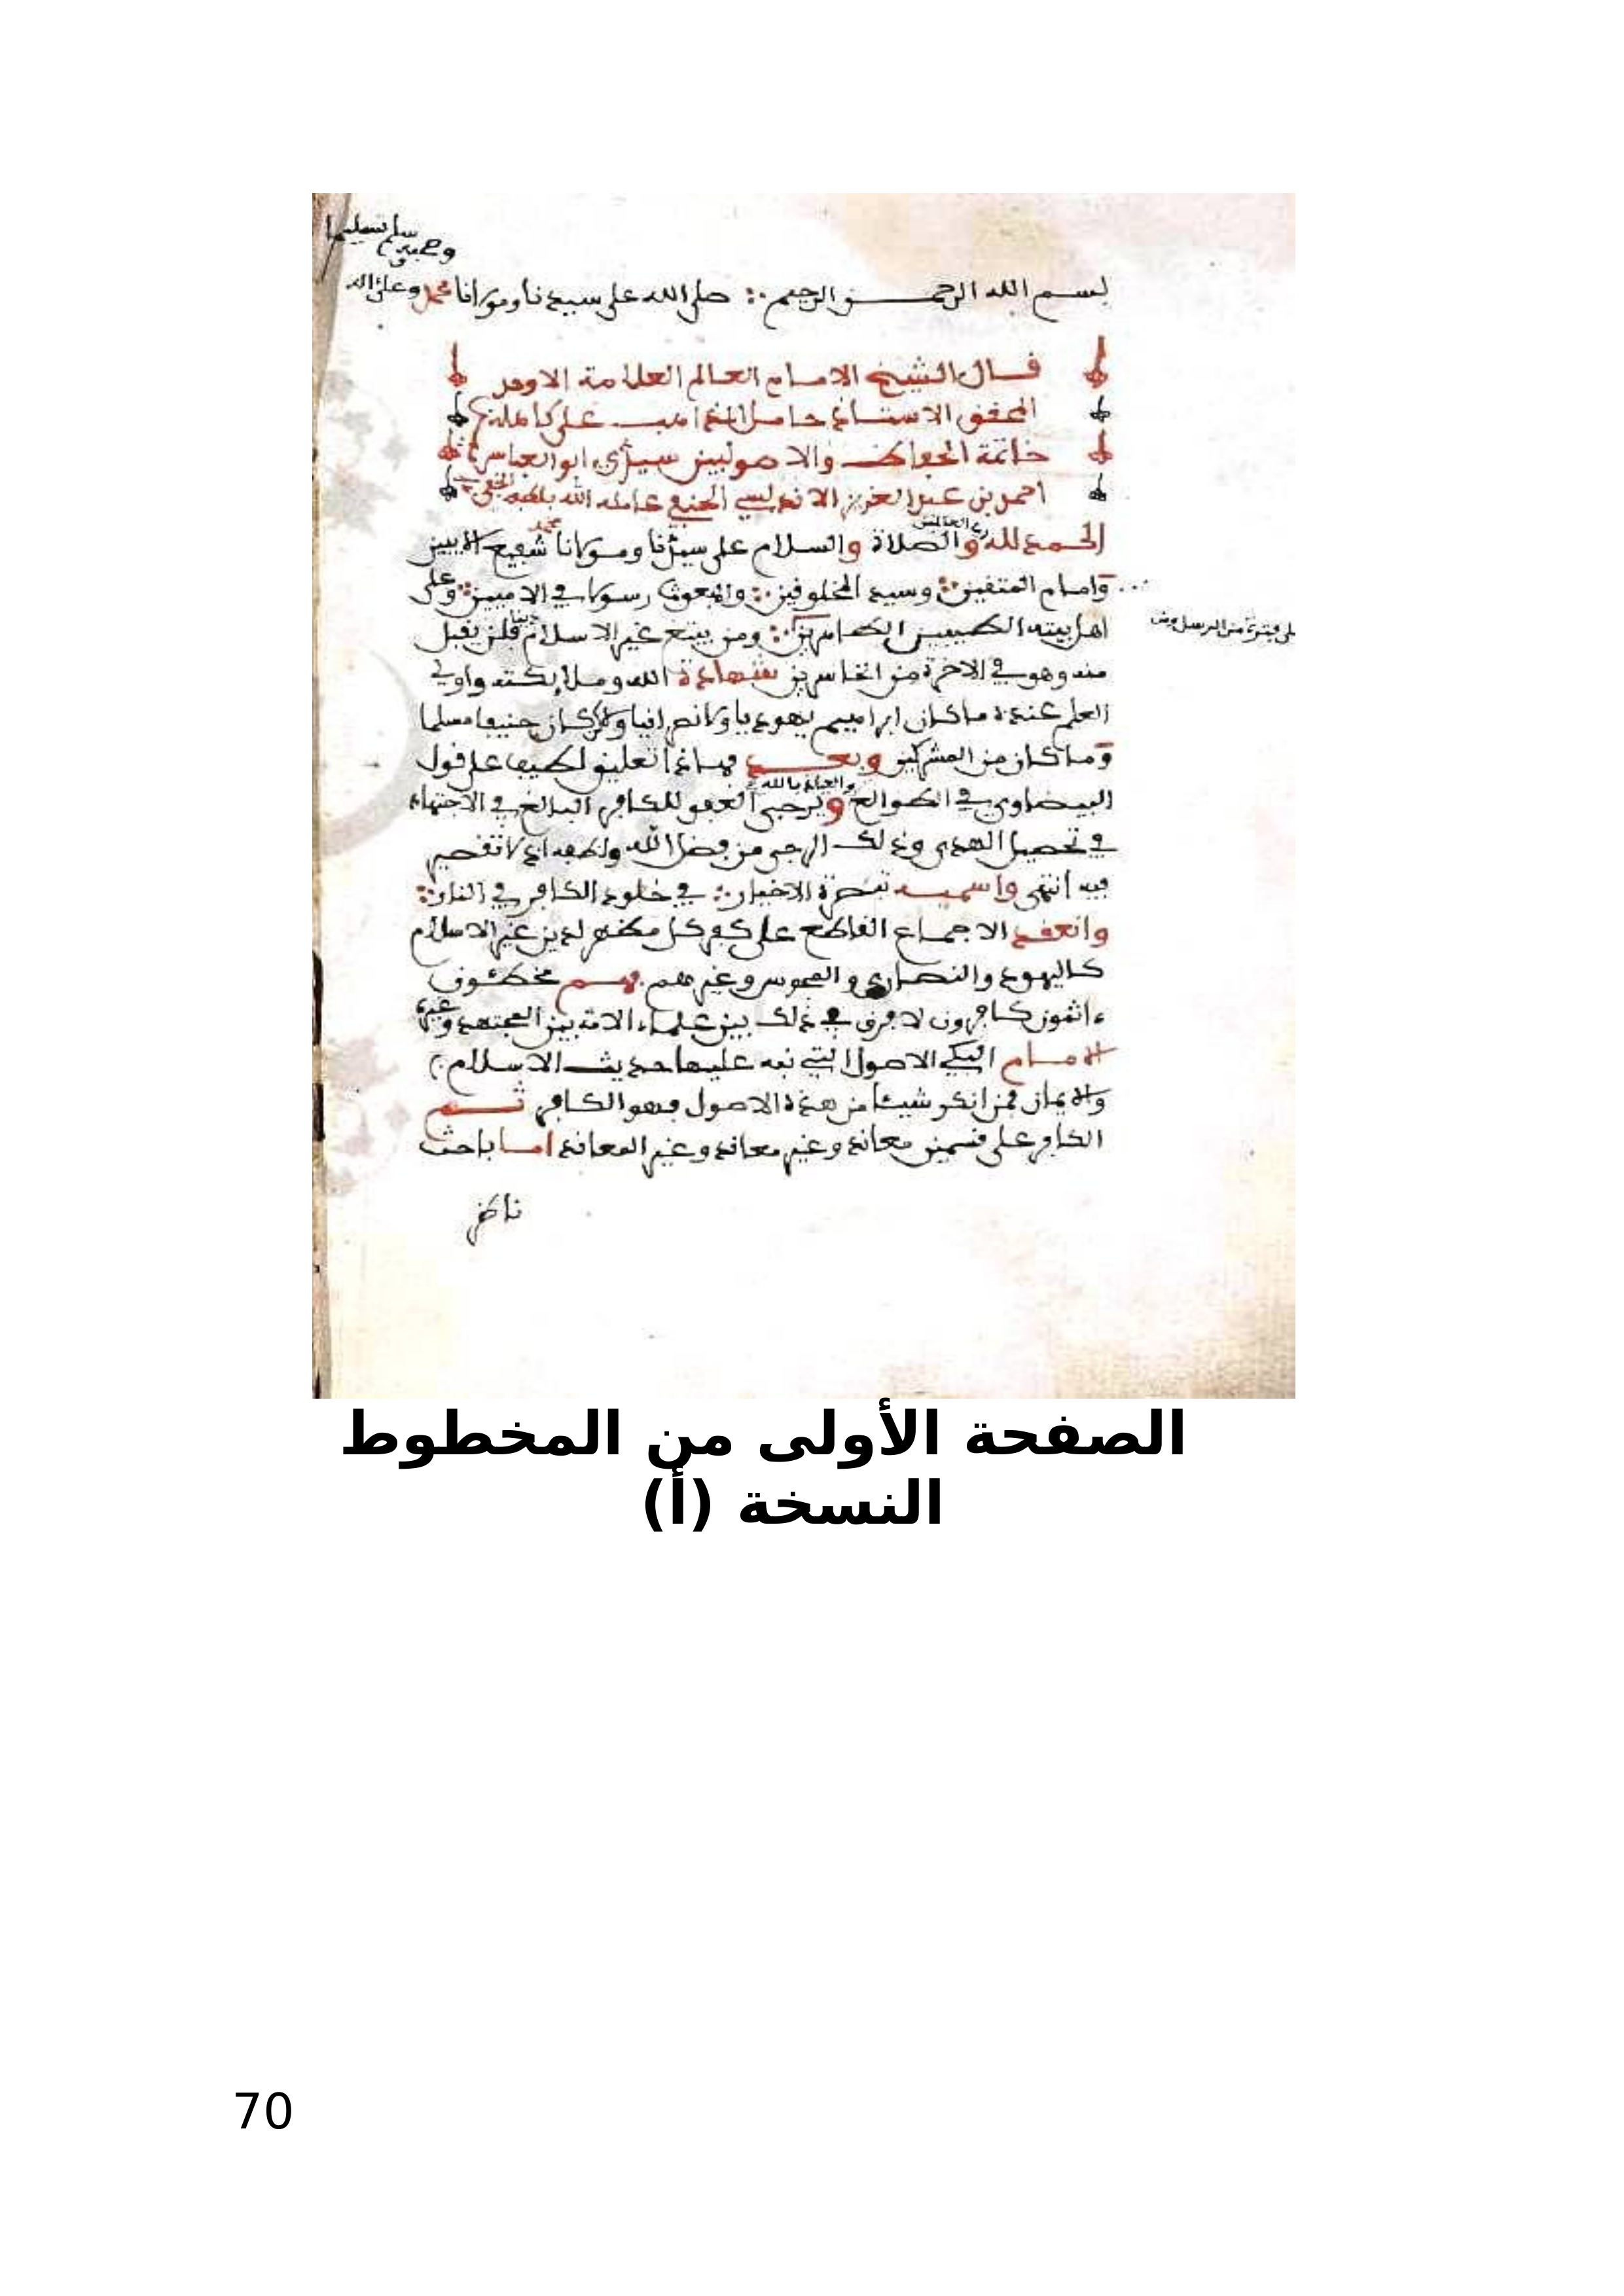 وصحبه وسلم تسليما
بسم الله الرحمن الرحيم صلى الله على سيدنا ومولانا محمد وعلى اله
قال الشيخ الامام العالم العلامة الاوحد
المحقق الاستاذ حامل المذاهب على كاهله
خاتمة الحفاظ والاصوليين سيدي ابو العباس
احمد بن عبد العزيز الاندلسي الحنفي عامله الله بلطفه الخفي
رب العالمين
الحمد لله والصلاة والسلام على سيدنا ومولانا محمد شفيع
وامام المتقين وسيد المخلوقين والمبعوث رسولا في الاميين وعلى
على فترة من الرسل ومن
اهل بيته الطيبين الطاهرين ومن يبتغ غير الاسلام دينا فلن يقبل
منه وهو في الاخرة من الخاسرين شهادة الله وملايكته واولي
العلم عنده ما كان ابراهيم يهوديا ولا نصرانيا ولاكن كان حنيفا مسلما
وما كان من المشركين وبعد فهاذا تعليق لطيف على قول
والعياذ بالله
البيضاوي في الطوالع ويرجى العفو للكافر البالغ في الاجتهاد
في تحصيل الهدى وذلك الرجى من فضل الله ولطفه اذ لا تقصير
فيه انتهى واسميه تبصرة الاخيار في خلود الكافر في النار
وانعقد الاجماع القاطع على كفر كل مظهر لدين غير الاسلام
كاليهود والنصارى والمجوس وغيرهم فهم مخطئون
ءاثمون كافرون لا فرق في ذلك بين علماء الامة بين المجتهد وغيره
الامام البكي الاصول التي نبه عليها حديث الاسلام
والايمان فمن انكر شيئا من هذه الاصول فهو الكافر ثم
الكافر على قسمين معاند وغير معاند وغير المعاند اما باحث
ناظر
الصفحة الأولى من المخطوط
النسخة (أ)
70